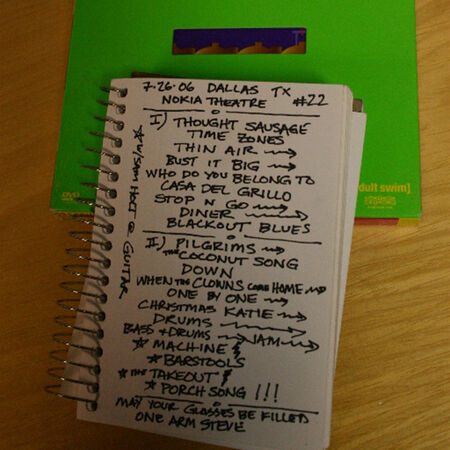 7·26·06 DALLAS TX
NOKIA THEATRE #22
I) THOUGHT SAUSAGE
TIME ZONES
THIN AIR
BUST IT BIG
WHO DO YOU BELONG TO
CASA DEL GRILLO
STOP N GO
DINER
BLACKOUT BLUES
II) PILGRIMS
THE COCONUT SONG
DOWN
WHEN THE CLOWNS COME HOME
ONE BY ONE
CHRISTMAS KATIE
DRUMS
BASS + DRUMS JAM
MACHINE
BARSTOOLS
THE TAKEOUT
PORCH SONG !!!
MAY YOUR GLASSES BE FILLED
ONE ARM STEVE
W/SAM HOLT @ GUITAR
DVD
dult swim]